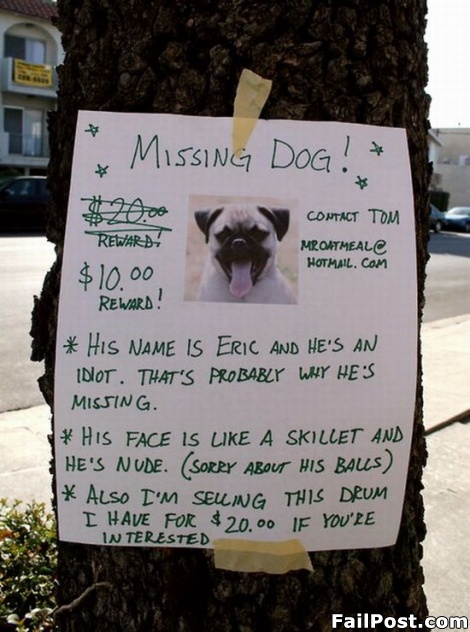 MISSING DOG!
$20.00
REWARD!
$10.00
REWARD!
CONTACT TOM
MROATMEAL@
HOTMAIL.COM
* HIS NAME IS ERIC AND HE'S AN
IDIOT. THAT'S PROBABLY WHY HE'S
MISSING.
* HIS FACE IS LIKE A SKILLET AND
HE'S NUDE. (SORRY ABOUT HIS BALLS)
* ALSO I'M SELLING THIS DRUM
I HAVE FOR $20.00 IF YOU'RE
INTERESTED
FailPost.com